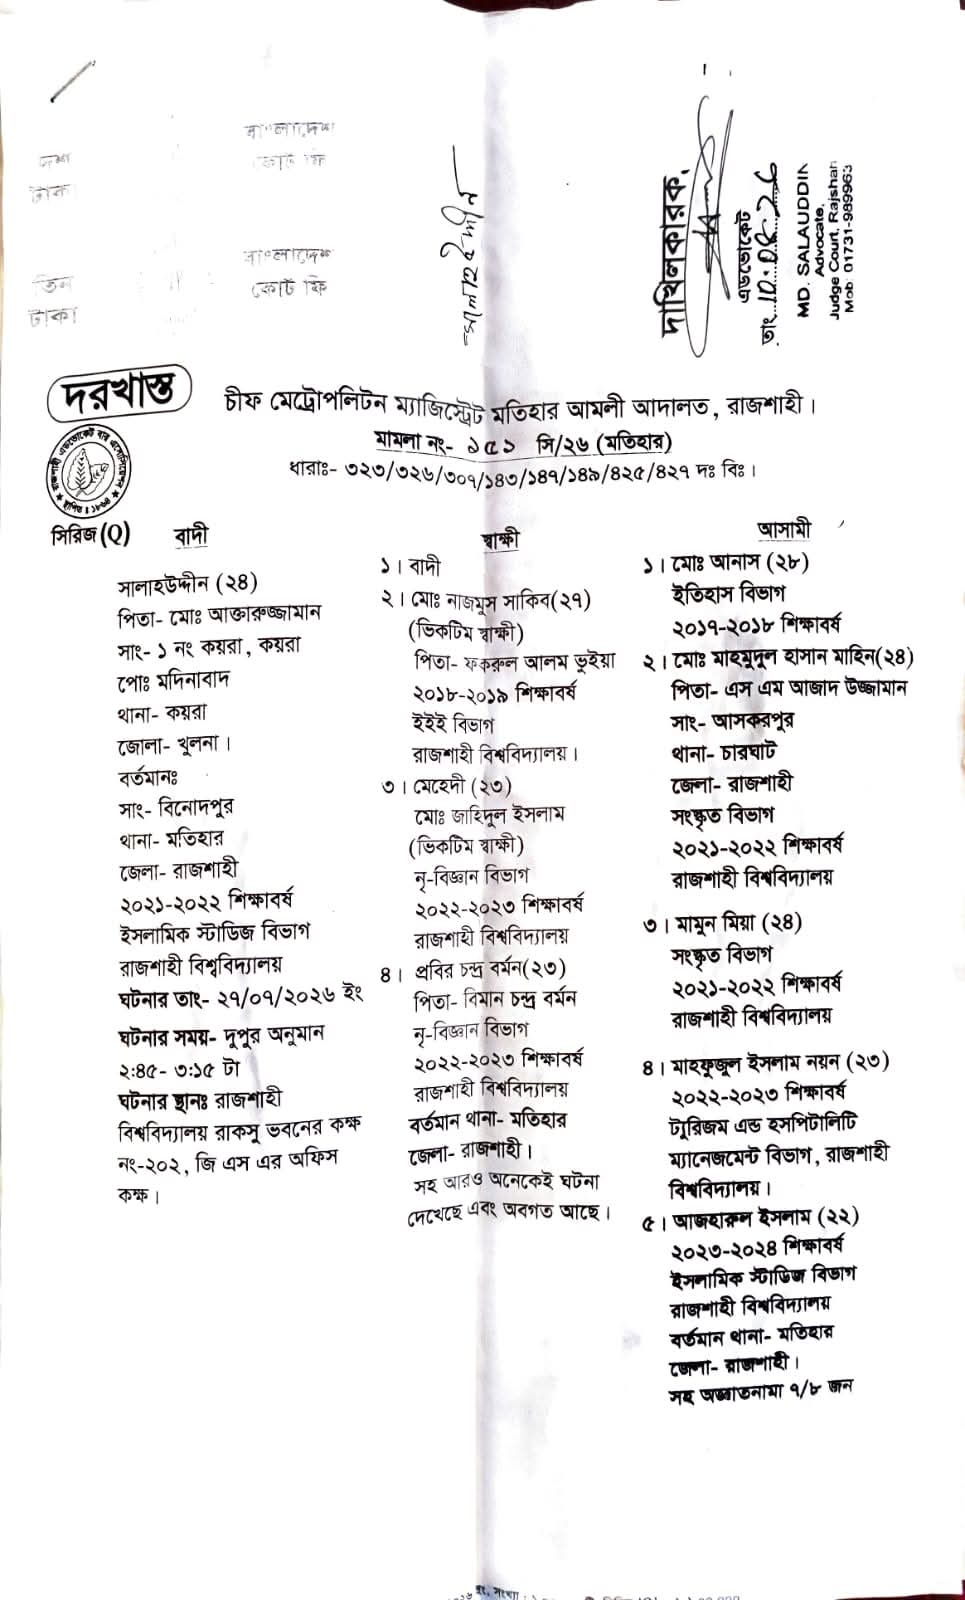 বাংলাদেশ
কোর্ট ফি
টাকা
বাংলাদেশ
কোর্ট ফি
তিন
টাকা
সালাহউদ্দীন
দাখিলকারক,
এডভোকেট
তাং...10.08.26
MD. SALAUDDIN
Advocate,
Judge Court, Rajshahi
Mob: 01731-989963
দরখাস্ত
চীফ মেট্রোপলিটন ম্যাজিস্ট্রেট মতিহার আমলী আদালত, রাজশাহী।
মামলা নং- ১৫১ সি/২৬ (মতিহার)
ধারাঃ- ৩২৩/৩২৬/৩০৭/১৪৩/১৪৭/১৪৯/৪২৫/৪২৭ দঃ বিঃ।
রাজশাহী এডভোকেট বার এসোসিয়েশন
সিরিজ (Q)
বাদী
সালাহউদ্দীন (২৪)
পিতা- মোঃ আক্তারুজ্জামান
সাং- ১ নং কয়রা, কয়রা
পোঃ মদিনাবাদ
থানা- কয়রা
জোলা- খুলনা।
বর্তমানঃ
সাং- বিনোদপুর
থানা- মতিহার
জেলা- রাজশাহী
২০২১-২০২২ শিক্ষাবর্ষ
ইসলামিক স্টাডিজ বিভাগ
রাজশাহী বিশ্ববিদ্যালয়
ঘটনার তাং- ২৭/০৭/২০২৬ ইং
ঘটনার সময়- দুপুর অনুমান
২:৪৫- ৩:১৫ টা
ঘটনার স্থানঃ রাজশাহী
বিশ্ববিদ্যালয় রাকসু ভবনের কক্ষ
নং-২০২, জি এস এর অফিস
কক্ষ।
স্বাক্ষী
১। বাদী
২। মোঃ নাজমুস সাকিব(২৭)
(ভিকটিম স্বাক্ষী)
পিতা- ফকরুল আলম ভুইয়া
২০১৮-২০১৯ শিক্ষাবর্ষ
ইইই বিভাগ
রাজশাহী বিশ্ববিদ্যালয়।
৩। মেহেদী (২৩)
মোঃ জাহিদুল ইসলাম
(ভিকটিম স্বাক্ষী)
নৃ-বিজ্ঞান বিভাগ
২০২২-২০২৩ শিক্ষাবর্ষ
রাজশাহী বিশ্ববিদ্যালয়
৪। প্রবির চন্দ্র বর্মন(২৩)
পিতা- বিমান চন্দ্র বর্মন
নৃ-বিজ্ঞান বিভাগ
২০২২-২০২৩ শিক্ষাবর্ষ
রাজশাহী বিশ্ববিদ্যালয়
বর্তমান থানা- মতিহার
জেলা- রাজশাহী।
সহ আরও অনেকেই ঘটনা
দেখেছে এবং অবগত আছে।
আসামী
১। মোঃ আনাস (২৮)
ইতিহাস বিভাগ
২০১৭-২০১৮ শিক্ষাবর্ষ
২। মোঃ মাহমুদুল হাসান মাহিন(২৪)
পিতা- এস এম আজাদ উজ্জামান
সাং- আসকরপুর
থানা- চারঘাট
জেলা- রাজশাহী
সংস্কৃত বিভাগ
২০২১-২০২২ শিক্ষাবর্ষ
রাজশাহী বিশ্ববিদ্যালয়
৩। মামুন মিয়া (২৪)
সংস্কৃত বিভাগ
২০২১-২০২২ শিক্ষাবর্ষ
রাজশাহী বিশ্ববিদ্যালয়
৪। মাহফুজুল ইসলাম নয়ন (২৩)
২০২২-২০২৩ শিক্ষাবর্ষ
ট্যুরিজম এন্ড হসপিটালিটি
ম্যানেজমেন্ট বিভাগ, রাজশাহী
বিশ্ববিদ্যালয়।
৫। আজহারুল ইসলাম (২২)
২০২৩-২০২৪ শিক্ষাবর্ষ
ইসলামিক স্টাডিজ বিভাগ
রাজশাহী বিশ্ববিদ্যালয়
বর্তমান থানা- মতিহার
জেলা- রাজশাহী।
সহ অজ্ঞাতনামা ৭/৮ জন